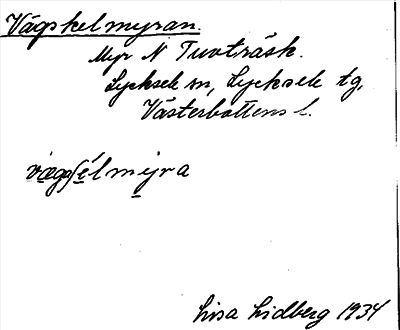 Vägskelmyran.
Myr N Tuvträsk.
Lycksele sn, Lycksele tg,
Västerbottens l.
Lisa Lidberg 1934